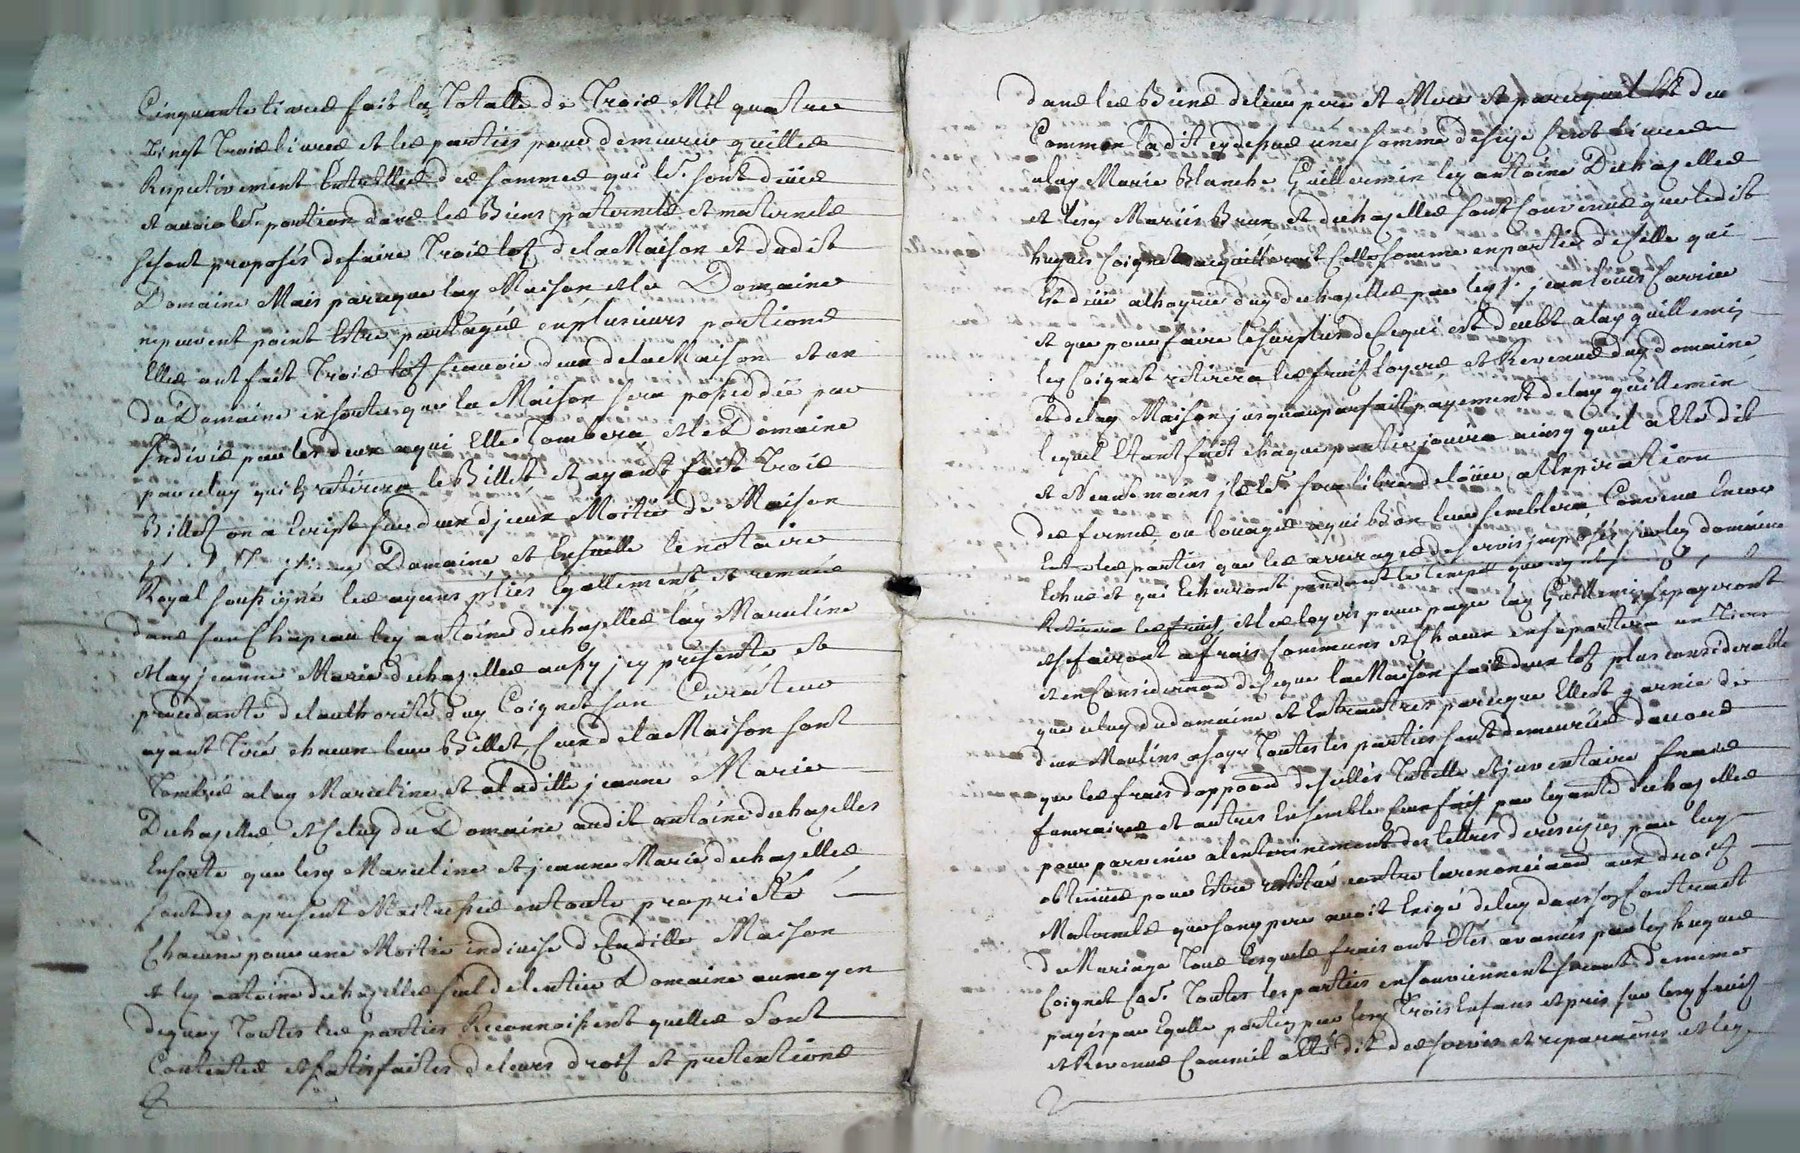 Cinquante livres fait la Totalle de Trois Mil quatre
vingt Trois livres et les parties pour demeurer quittes
Respectivement Entrelles des sommes qui lr. sont düües
et avoir lr. portion dans les Biens paternels et maternels
se sont proposés de faire Trois lots de la Maison et dudit
Domaine Mais parceque lad. Maison et le Domaine
ne peuvent point Estre partagés en plusieurs portions
Elles ont fait Trois lots scavoir deux de la Maison et un
du Domaine en sorte que la Maison sera possedée par
Indivis par les deux a qui Elle Tombera et le Domaine
par celuy qui retirera le Billet et ayant fait Trois
Billets on a Ecript sur deux d'iceux Moitié de Maison
Domaine et Ensuitte le notaire
Royal soussigné les ayans pliés Egallement et remués
dans son Chapeau led. antoine duchaselles lad. Marceline
et lad. jeanne Marie duchaselles aussy icy presente et
procedante de l'authorité dud. Coignet son Curateur
ayant Tiré chacun leur Billet, Ceux de la Maison sont
Tombés a lad. Marceline et a laditte jeanne Marie
Duchaselles et Celuy du Domaine audit antoine duchaselles
Ensorte que lesd. Marceline et jeanne Marie duchaselles
sont des apresent Maitresses en toute proprieté
Chacune pour une Moitié indivise de laditte Maison
et led. antoine duchaselles seul de l'entier Domaine au moyen
de quoy Toutes les parties Reconnoissent quelles sont
Contentes et satisfaites de leurs droits et pretentions
dans les Biens de leur pere et Mere et parcequ'il Est deu
Comme on la dit cydessus une somme de six Cent livres
a lad. Marie Blanche Guillermin led. antoine Duchaselles
et lesd. Mariés Brun et duchaselles sont Convenus que ledit
hugues Coignet acquitteront Cette somme en partie de Celle qui
Est düüe a l'hoyrie dud. duchaselles par led. sr. jean louis Carrier
et que pour faire le surplus de Ce qui est deubt a lad. guillermin
led. Coignet retirera les fruits loyers et Revenus dud. domaine
et de lad. Maison jusquau parfait payement de lad. guillermin
lequel Etant fait chaque partie jouira ainsy quil a Eté dit
et Neantmoins il lr. sera libre de loüer a l'expiration
des fermes ou louages a qui Bon leur semblera, Convenu Encor
Entre les parties que les arrerages des servis imposés sur led. domaine
Echus et qui Echerront pendant le temps que
Retirera les fruits et les loyers pour payer lad. Guillermin se payeront
et se fairont a frais Communs et Chacun en suportera un Tiers
et en Consideration de Ce que la Maison fait deux lots plus considerable
que celuy du domaine et Entrautres parceque Elle est garnie de
deux Moulins a soye Toutes les parties sont demeurées daccord
que les frais d'apposition de sellés Tutelle et inventaire frais
funeraires et autres Ensemble Ceux faits par led. antoine duchaselles
pour parvenir a l'entherinement des lettres de rescision par luy
obtenues pour Estre restitué contre la renonciation aux droits
Maternels que son pere avoit Exigé de luy dans son Contract
de Mariage Tous lesquels frais ont Etés avancés par led. hugues
Coignet Toutes les parties en conviennent seront de meme
payés par Egalle portion par lesd. Trois Enfans et pris sur lesd. fruits
et Revenus Comme il a Eté dit des servis et reparations et led.